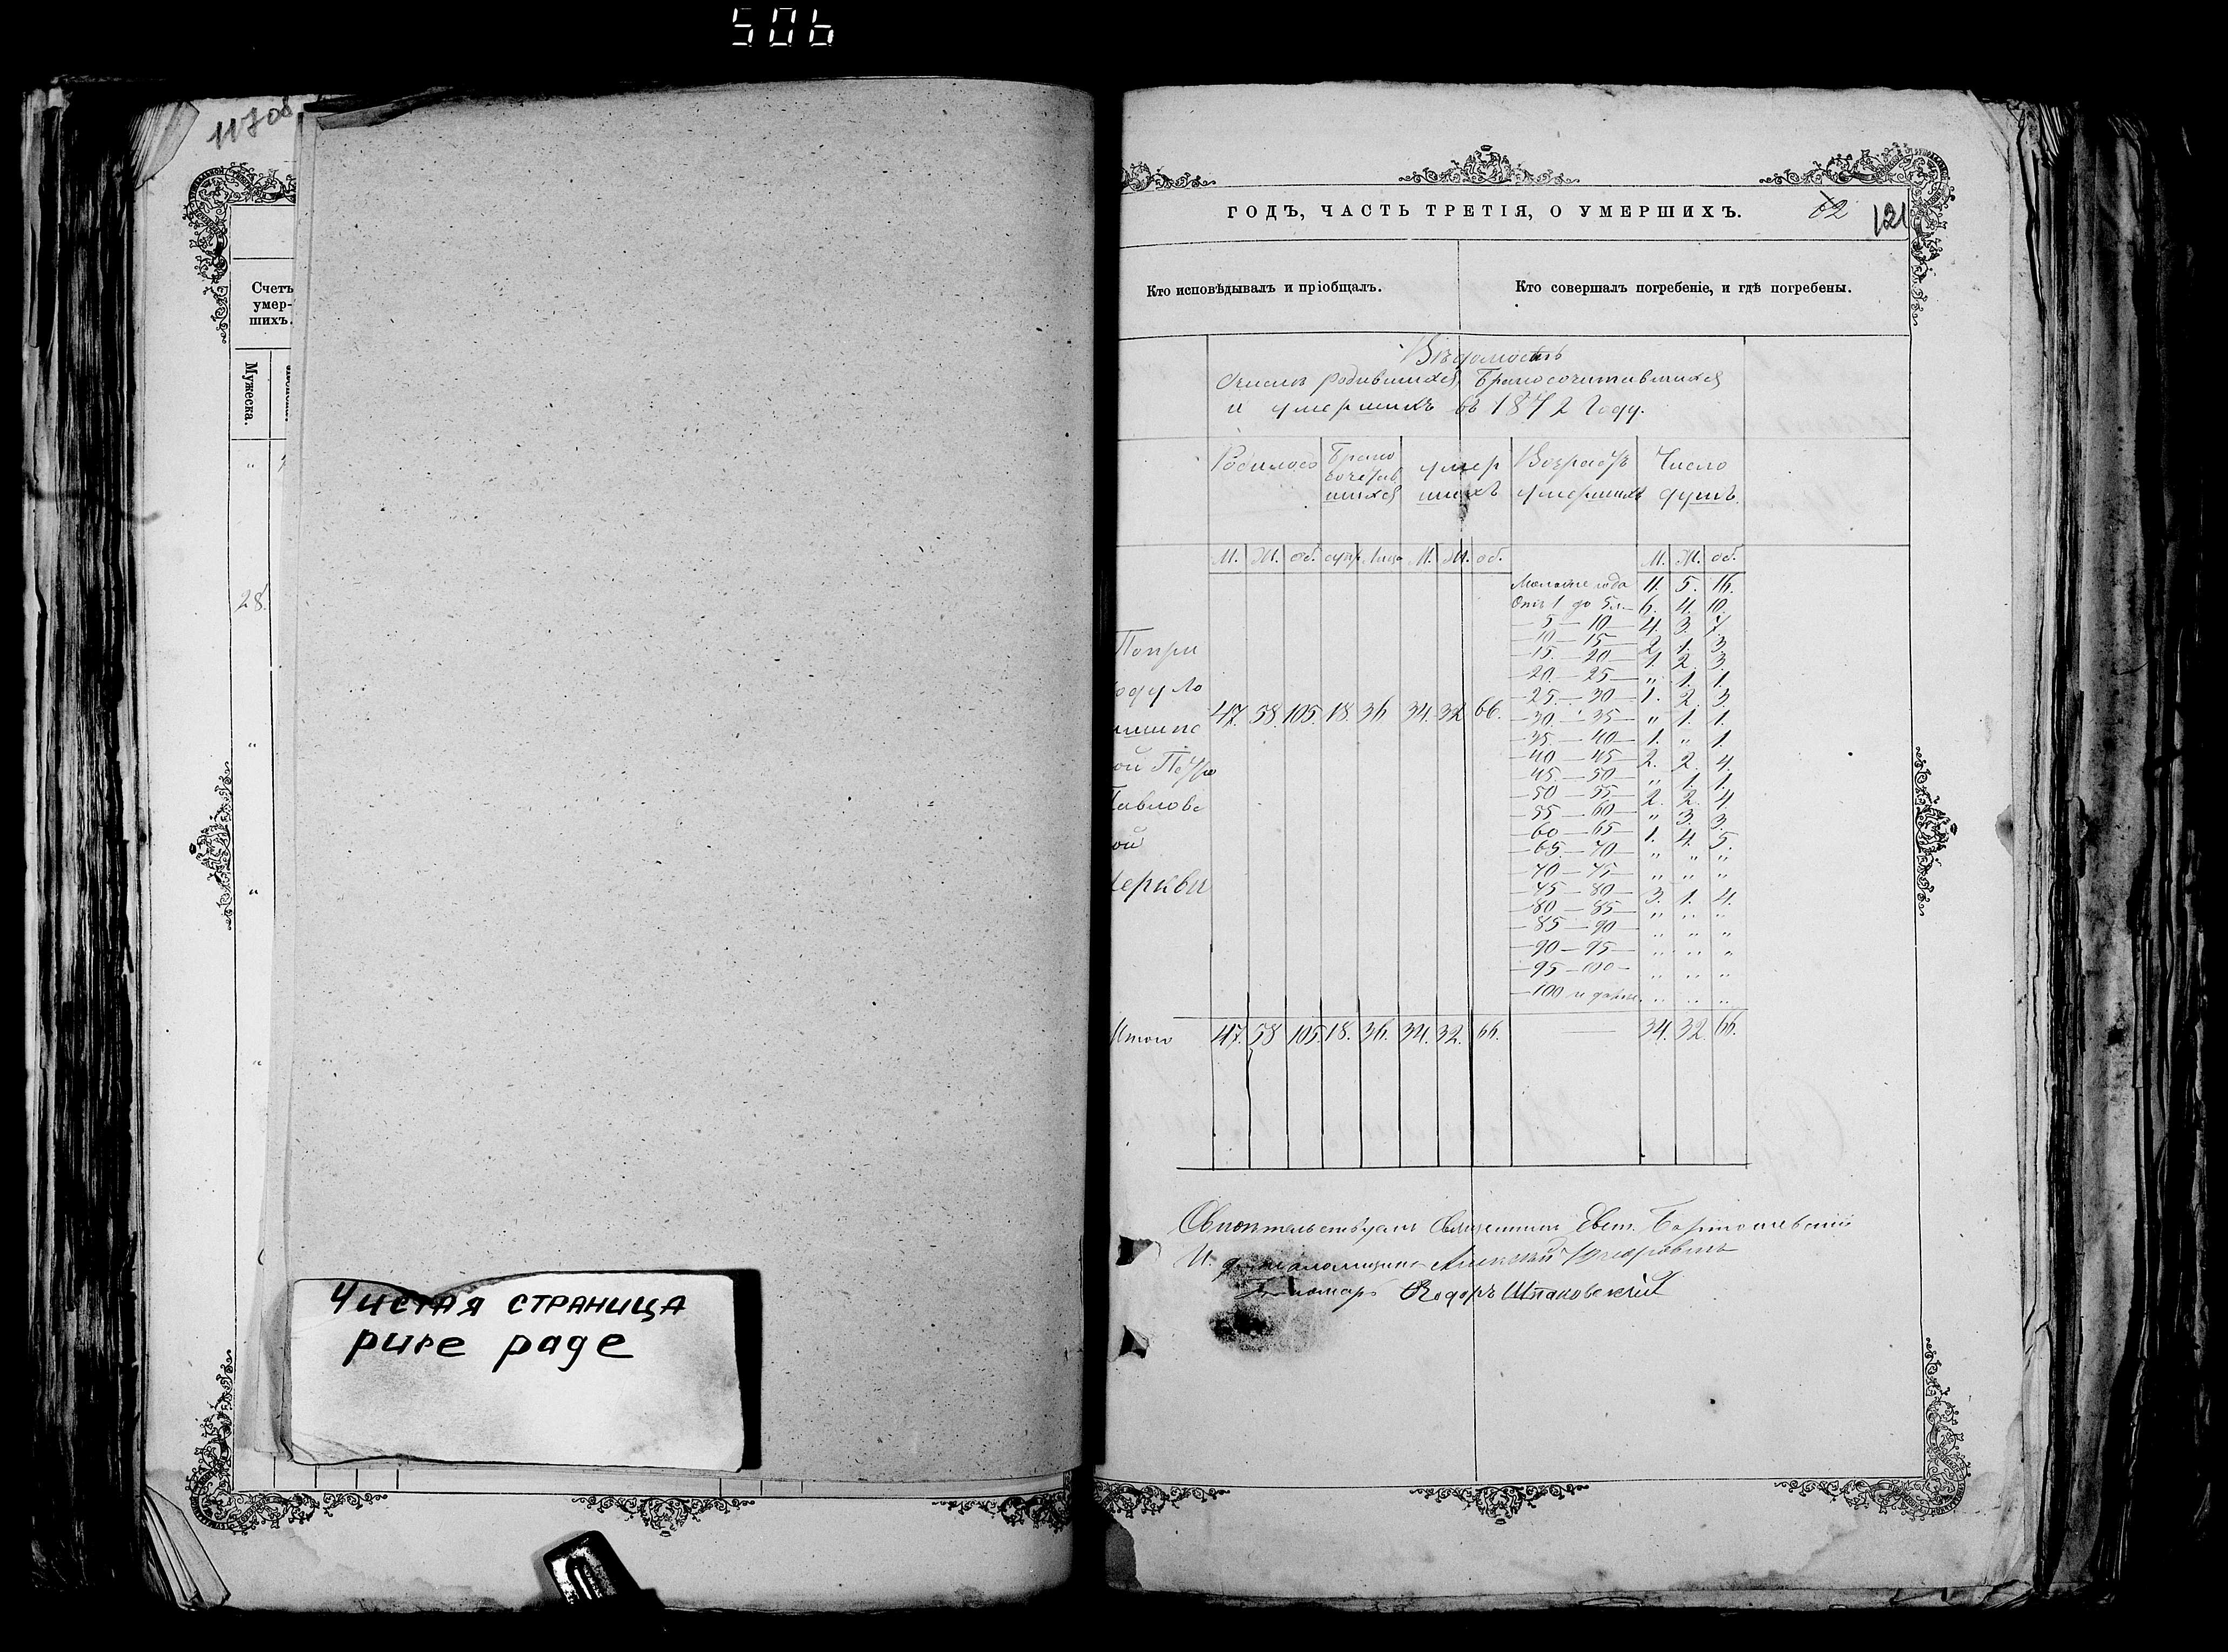 506
117об
Счетъ
умер-
шихъ.
Мужеска.
28.
Чистая страница
pure page
ГОДЪ, ЧАСТЬ ТРЕТІЯ, О УМЕРШИХЪ.
62 121
Кто исповѣдывалъ и пріобщалъ. Кто совершалъ погребеніе, и гдѣ погребены.
Вѣдомость
родившихся, бракосочитавшихся
и умершихъ въ 1872 году.
Родилось Брако умер Возрастъ Число
сочетав шихъ умершихъ душъ.
шихся
М. Ж. об. супр. лица М. Ж. об. М. Ж. об.
Моложе года 11. 5. 16.
Отъ 1 до 5 л. 6. 4. 10.
5 — 10 4. 3. 7.
10 — 15 2. 1. 3.
15 — 20 1. 2. 3.
20 — 25 " 1. 1.
25 — 30 1. 2. 3.
30 — 35 " 1. 1.
35 — 40 1. " 1.
40 — 45 2. 2. 4.
45 — 50 " 1. 1.
50 — 55 2. 2. 4.
55 — 60 " 3. 3.
60 — 65 1. 4. 5.
65 — 70 " " "
70 — 75 " " "
75 — 80 3. 1. 4.
80 — 85 " " "
85 — 90 " " "
90 — 95 " " "
95 — 100 " " "
100 и далѣе " " "
При
47. 58. 105. 18. 36 34. 32 66.
ой Петро
Павловс
ой
Церкви
Итого 47. 58 105. 18. 36. 34. 32. 66. — 34. 32. 66.
Священникъ Евст.
И. д. псаломщика Алексѣй
Пономарь Ѳеодоръ Шпаковскій